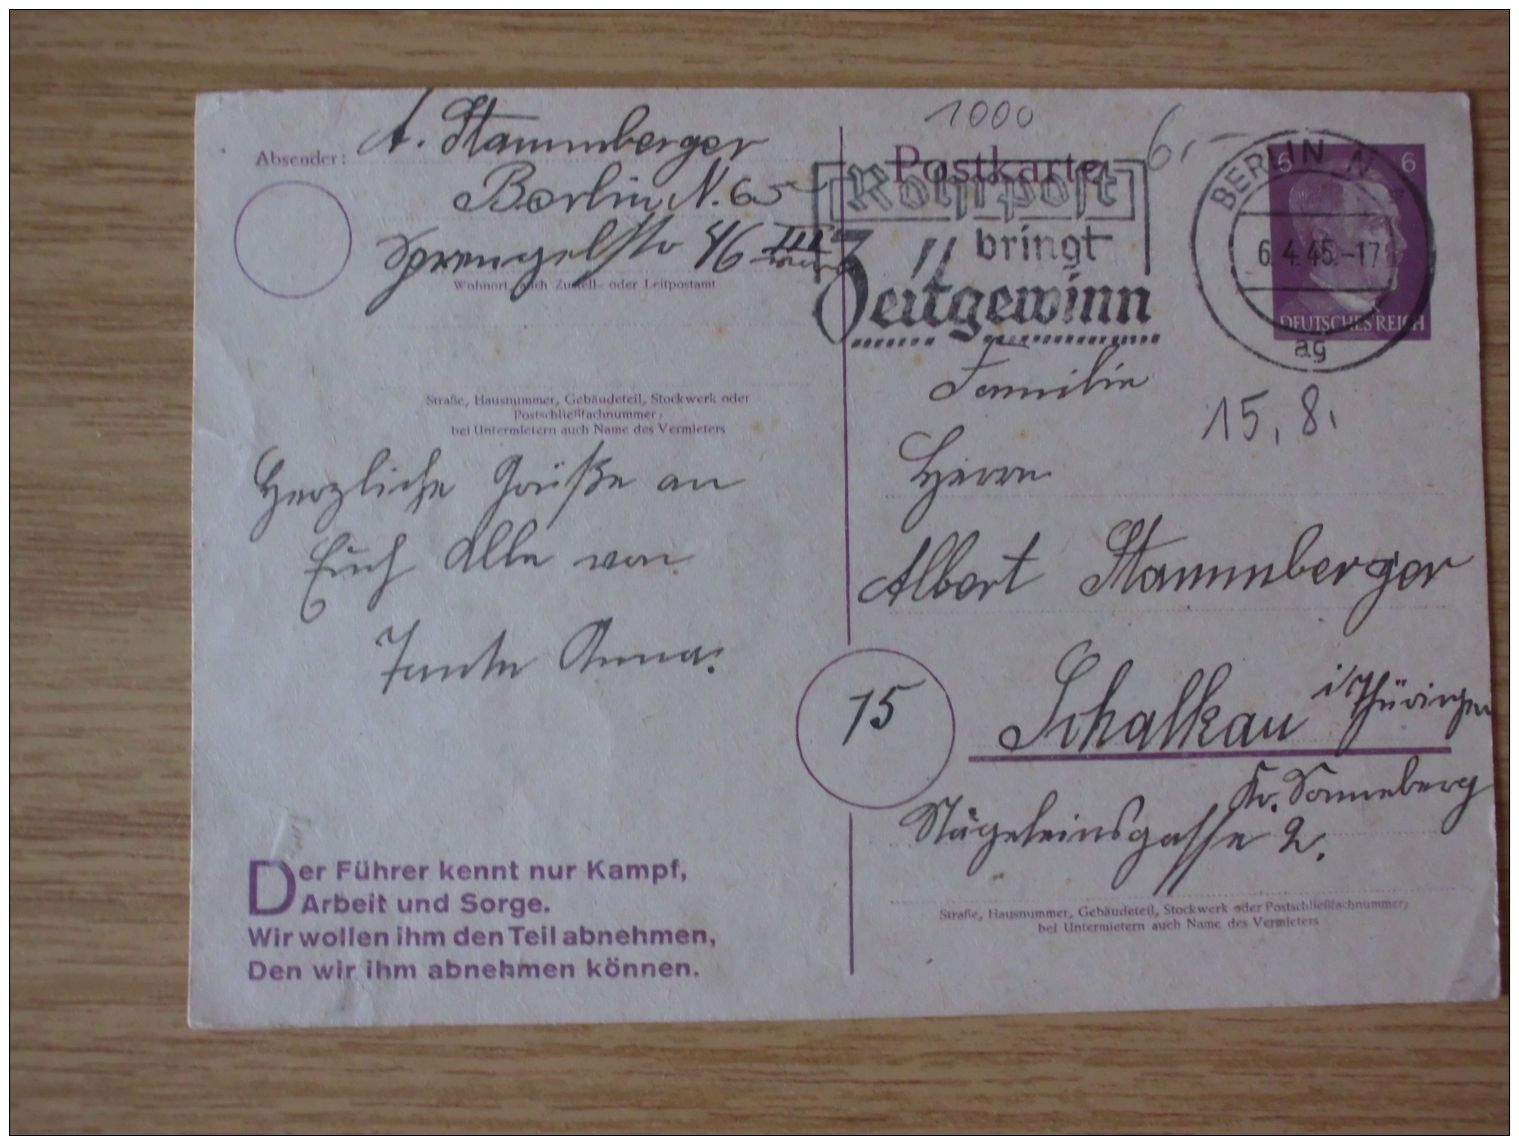 Absender: A. Stammberger
Berlin N. 65
Sprengelstr 46 III
Wohnort, auch Zustell- oder Leitpostamt
Straße, Hausnummer, Gebäudeteil, Stockwerk oder
Postschließfachnummer;
bei Untermietern auch Name des Vermieters
Herzliche Grüße an
Euch Alle von
Tante Anna.
Der Führer kennt nur Kampf,
Arbeit und Sorge.
Wir wollen ihm den Teil abnehmen,
Den wir ihm abnehmen können.
1000
6,-
Postkarte
Rohrpost
bringt
Zeitgewinn
BERLIN N
6.4.45.-17
ag
6 6
DEUTSCHES REICH
15,8,
Familie
Herrn
Albert Stammberger
15
Schalkau i/Thüringen
Kr. Sonneberg
Nägeleinsgasse 2.
Straße, Hausnummer, Gebäudeteil, Stockwerk oder Postschließfachnummer;
bei Untermietern auch Name des Vermieters